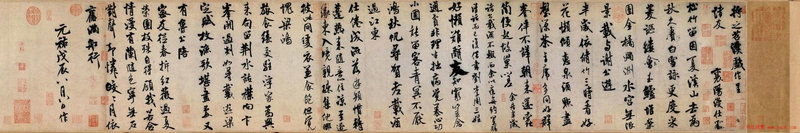 將之苕溪戲作呈
諸友 襄陽漫仕黻
松竹留因夏溪山去為
秋久賡白雪詠更度采
菱謳縷會玉鱸堆案
團金橘滿洲水宮無限
景載與謝公遊
半歲依脩竹三時看好
花懶傾惠泉酒點盡
壑源茶主席多同好群
峯伴不譁朝來還蠹
簡便起故巢嗟 余居半歲諸公
載酒不輟而余以疾每約置膳清
話而已復借書劉李周三姓
好懶難辭友知窮豈念
通貧非理生拙病覺養心功
小圃能留客青冥不厭
鴻秋帆尋賀老載酒
過江東
仕倦成流落遊頻慣轉
蓬熱來隨意住涼至逐
緣東入境親疎集他鄉
彼此同暖衣兼食飽但覺
愧梁鴻
旅食緣交駐浮家為興
來句留荊水話襟向卞
峯開過剡如尋戴遊梁
定賦枚漁歌堪畫處又
有魯公陪
密友從春拆紅薇過夏
榮團枝殊自得顧我若含
情漫有蘭隨色寧無石
對聲却憐皎皎月依
舊滿船行
元祐戊辰八月八日作